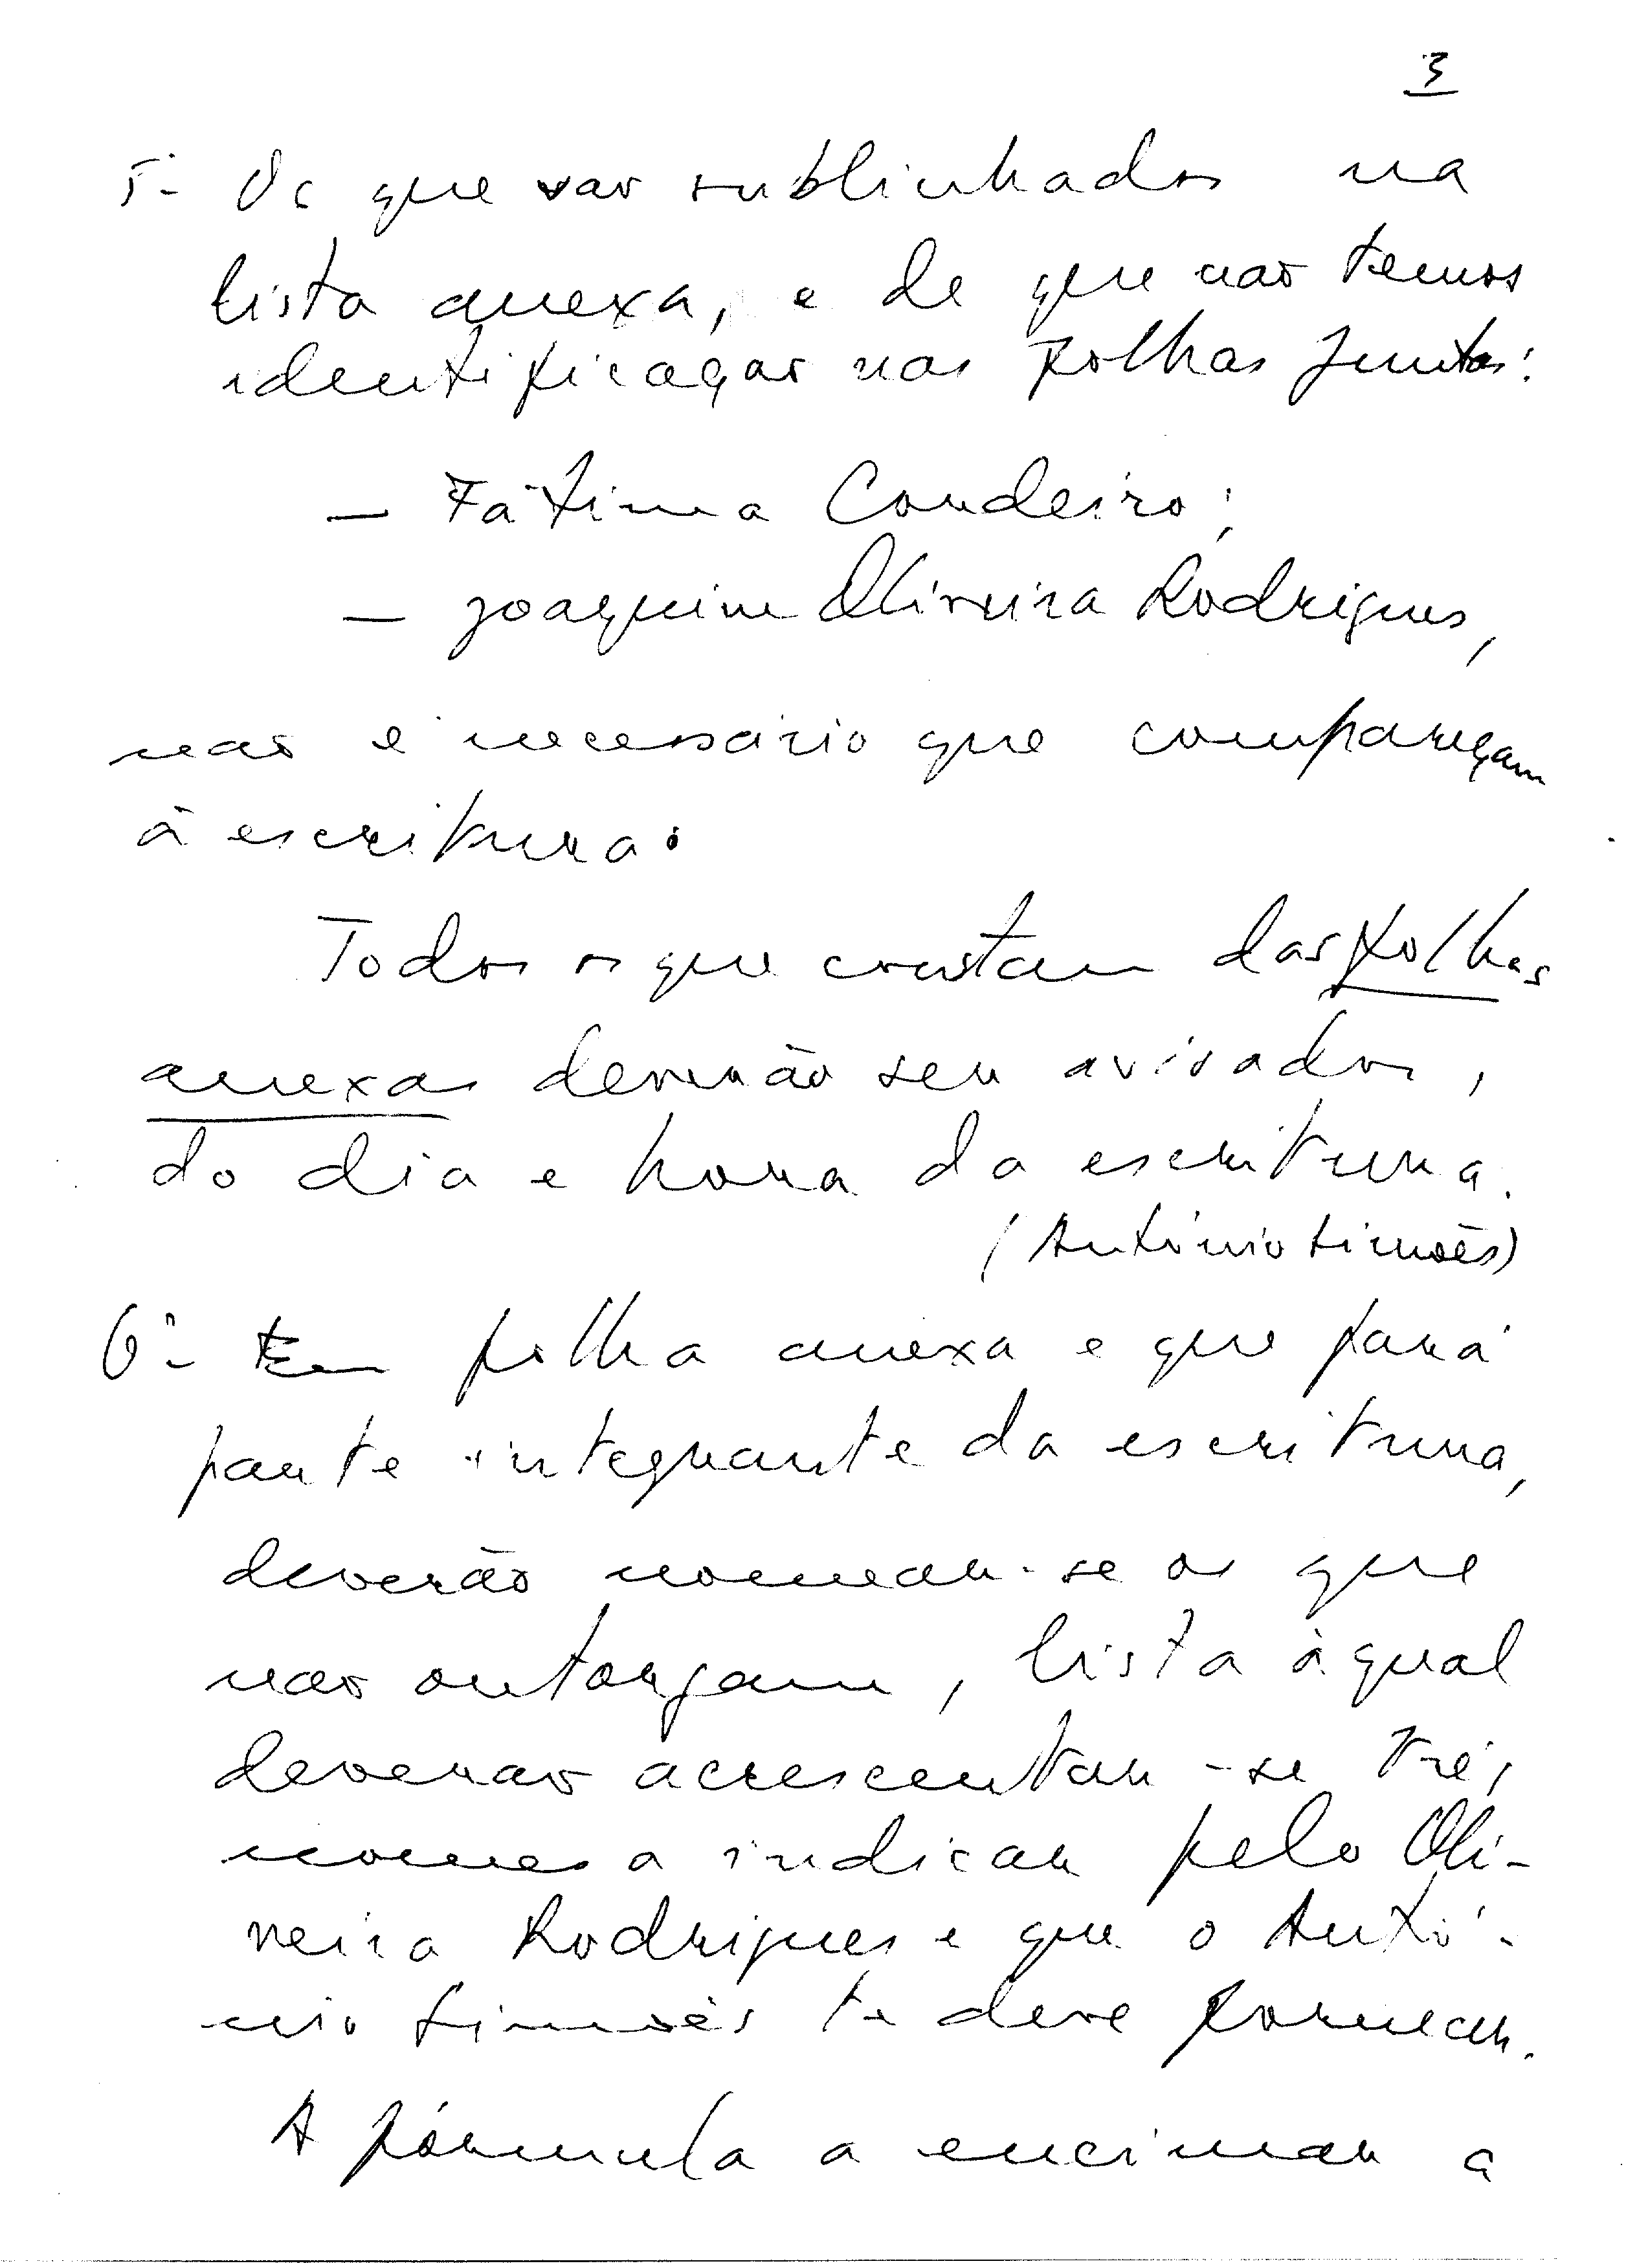 3
5º- Os que vao sublinhados na
lista anexa, e de que nao temos
identificaçao nas folhas juntas:
— Fátima Cordeiro;
— Joaquim Oliveira Rodrigues,
nao é necessário que compareçam
à escritura.
Todos os que constam das folhas
anexas deverão ser avisados,
do dia e hora da escritura.
(António Simões)
6º- Em folha anexa e que fará
parte integrante da escritura,
deverão nomear-se os que
nao outorgam, lista à qual
deverao acrescentar-se três
nomes a indicar pelo Oli-
veira Rodrigues e que o Antó-
nio Simões te deve fornecer.
A fórmula a encimar a